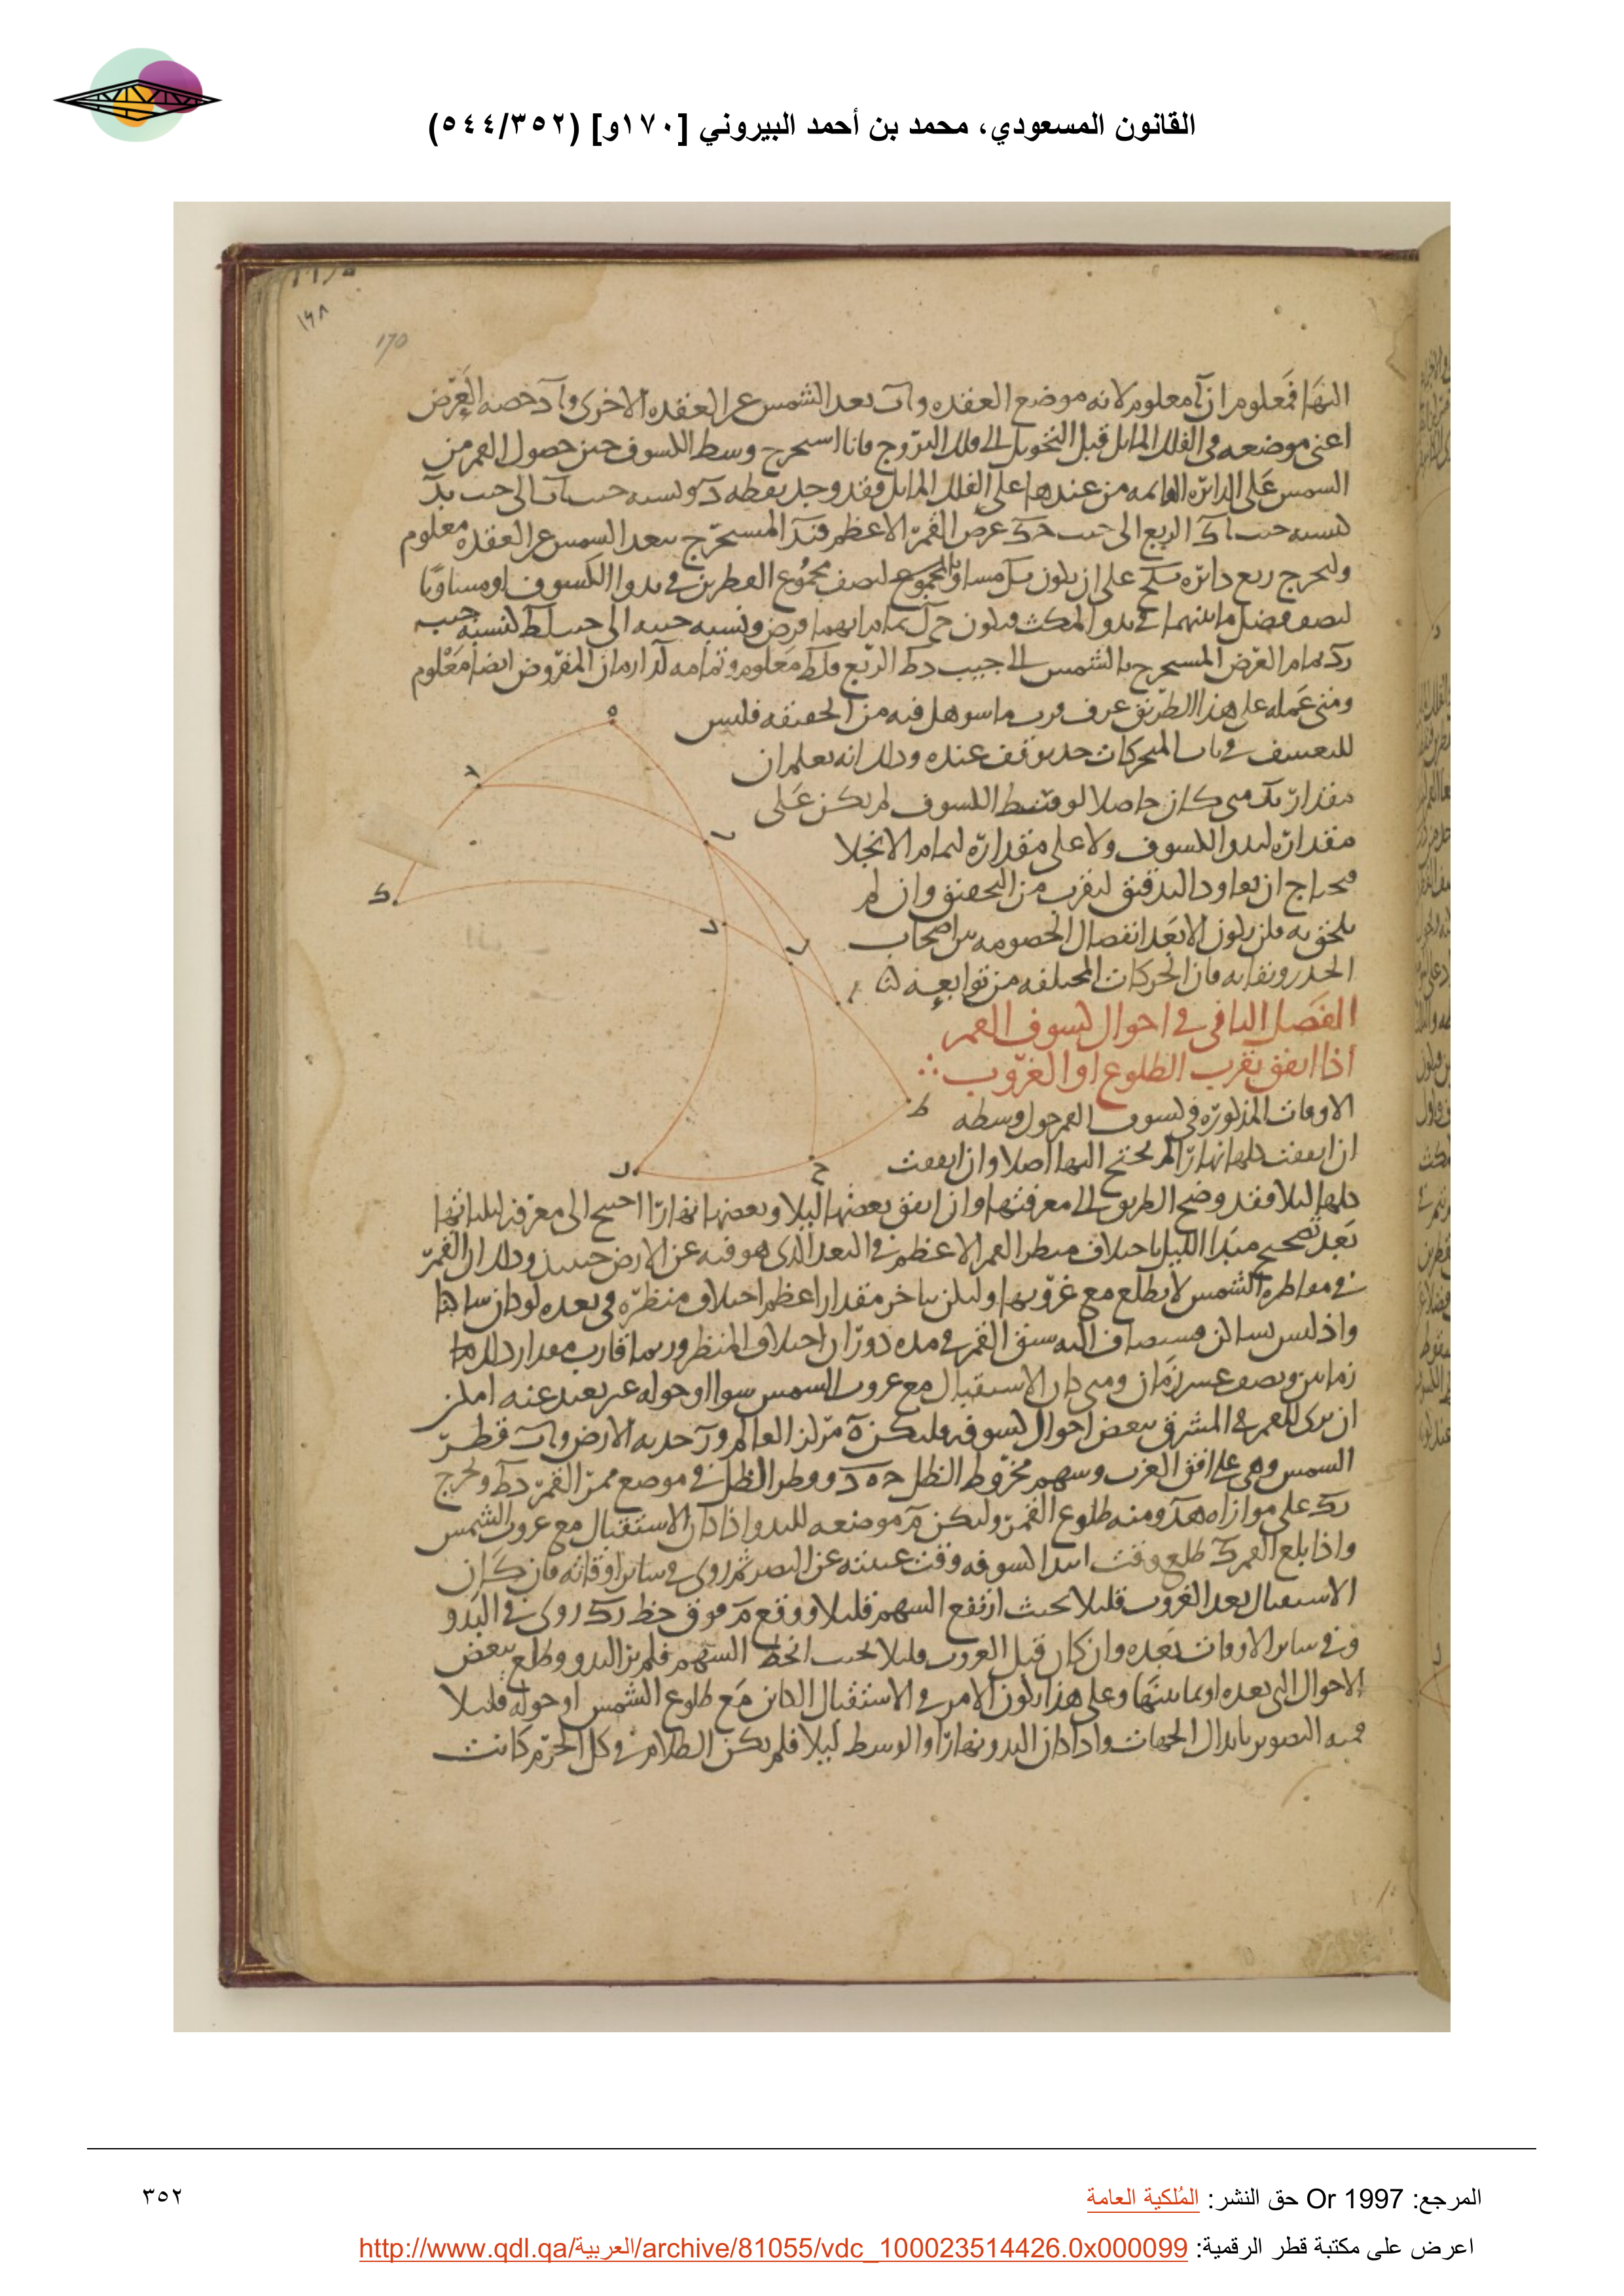 القانون المسعودي، محمد بن أحمد البيروني [١٧٠و] (٥٤٤/٣٥٢)
١٦٨
170
النها فمعلوم ان آ معلوم لانه موضع العقده و آب بعد الشمس عن العقده الاخرى و آد حصه العرض
اعنى موضعه فى الفلك المايل قبل التحويل الى فلك البروج فانا استخرج وسط الكسوف حين حصول القمر من
الشمس على الدائره القائمه من عندها على الفلك المايل فقد وجد نقطه د ونسبه جيب آب الى جيب بد
كنسبه جيب اك الربع الى جيب حك عرض القمر الاعظم فبد المستخرج ببعد الشمس عن العقده معلوم
وليخرج ربع دايره على ان يكون مساويا لمجموع لنصف مجموع القطرين فى بدو الكسوف او مساويا
لنصف فضل ما بينهما فى بدو المكث فيكون تمام ايهما فرض ونسبه جيبه الى جيب لط كنسبه جيب
رك تمام العرض المستخرج بالشمس الى جيب دط الربع فلط معلوم وتمامه لد ازمان المفروض ايضا معلوم
ومتى عمله على هذا الطريق عرف قرب ما سوهل فيه من الحقيقه فليس
للتعسف فى باب المتحركات حد يوقف عنده وذلك انه يعلم ان
مقدار بد متى كان حاصلا لوقت وسط الكسوف لم يكن على
مقداره لبدو الكسوف ولا على مقداره لتمام الانجلا
فيحتاج ان يعاود التدقيق ليقرب من التحقيق وان لم
يلحق به فلن يكون الا بعد انفصال الخصومه بين اصحاب
الجذر ونفاته فان الحركات المختلفه من توابعه
الفصل الثانى فى احوال كسوف القمر
اذا اتفق بقرب الطلوع او الغروب
الاوقات المذكوره فى كسوف القمر حول وسطه
ان اتفقت كلها نهارا لم يحتج اليها اصلا وان اتفقت
كلها ليلا فقد وضح الطريق الى معرفتها وان اتفق بعضها ليلا وبعضها نهارا احتيج الى معرفه ليلياتها
بعد تصحيح مبدا الليل باختلاف منظر القمر الاعظم فى البعد الذى هو فيه عن الارض حينئذ وذلك ان القمر
فى مقاطره الشمس لا يطلع مع غروبها ولكن يتاخر مقدار اعظم اختلاف منظره فى بعده لو كان ساكنا
واذ ليس بساكن فينضاف اليه سبق القمر فى مده دوران اختلاف المنظر وربما قارب مقدار ذلك
زمانين ونصف عشر زمان ومتى كان الاستقبال مع غروب الشمس سوا او حوله غير بعيد عنه امكن
ان يرى للقمر فى المشرق بعض احوال كسوفه فليكن ه مركز العالم و ر حدبه الارض و آب قطر
الشمس وهى على افق الغرب وسهم مخروط الظل ح ه د وقطر الظل فى موضع ممر القمر دط ونخرج
رك على موازاه هد ومنه طلوع القمر وليكن م موضعه للبدو اذا كان الاستقبال مع غروب الشمس
واذا بلغ القمر ك طلع وقت ابتدا كسوفه وقت غيبته عن البصر ثم روى فى ساير اوقاته فان كان
الاستقبال بعد الغروب قليلا بحيث ارتفع السهم قليلا ووقع م فوق خط رك روى فى البدو
وفى ساير الاوقات بعده وان كان قبل الغروب قليلا بحيث انحط السهم فلم ير البدو وطلع ببعض
الاحوال التى بعده او بما بينها وعلى هذا يكون الامر فى الاستقبال الكاين مع طلوع الشمس او حوله قليلا
فيه التصوير بابدال الجهات واذا كان البدو نهارا والوسط ليلا فلم يكن الظلام فى كل الجرم كانت
المرجع: Or 1997 حق النشر: المُلكية العامة
٣٥٢
اعرض على مكتبة قطر الرقمية: http://www.qdl.qa/العربية/archive/81055/vdc_100023514426.0x000099